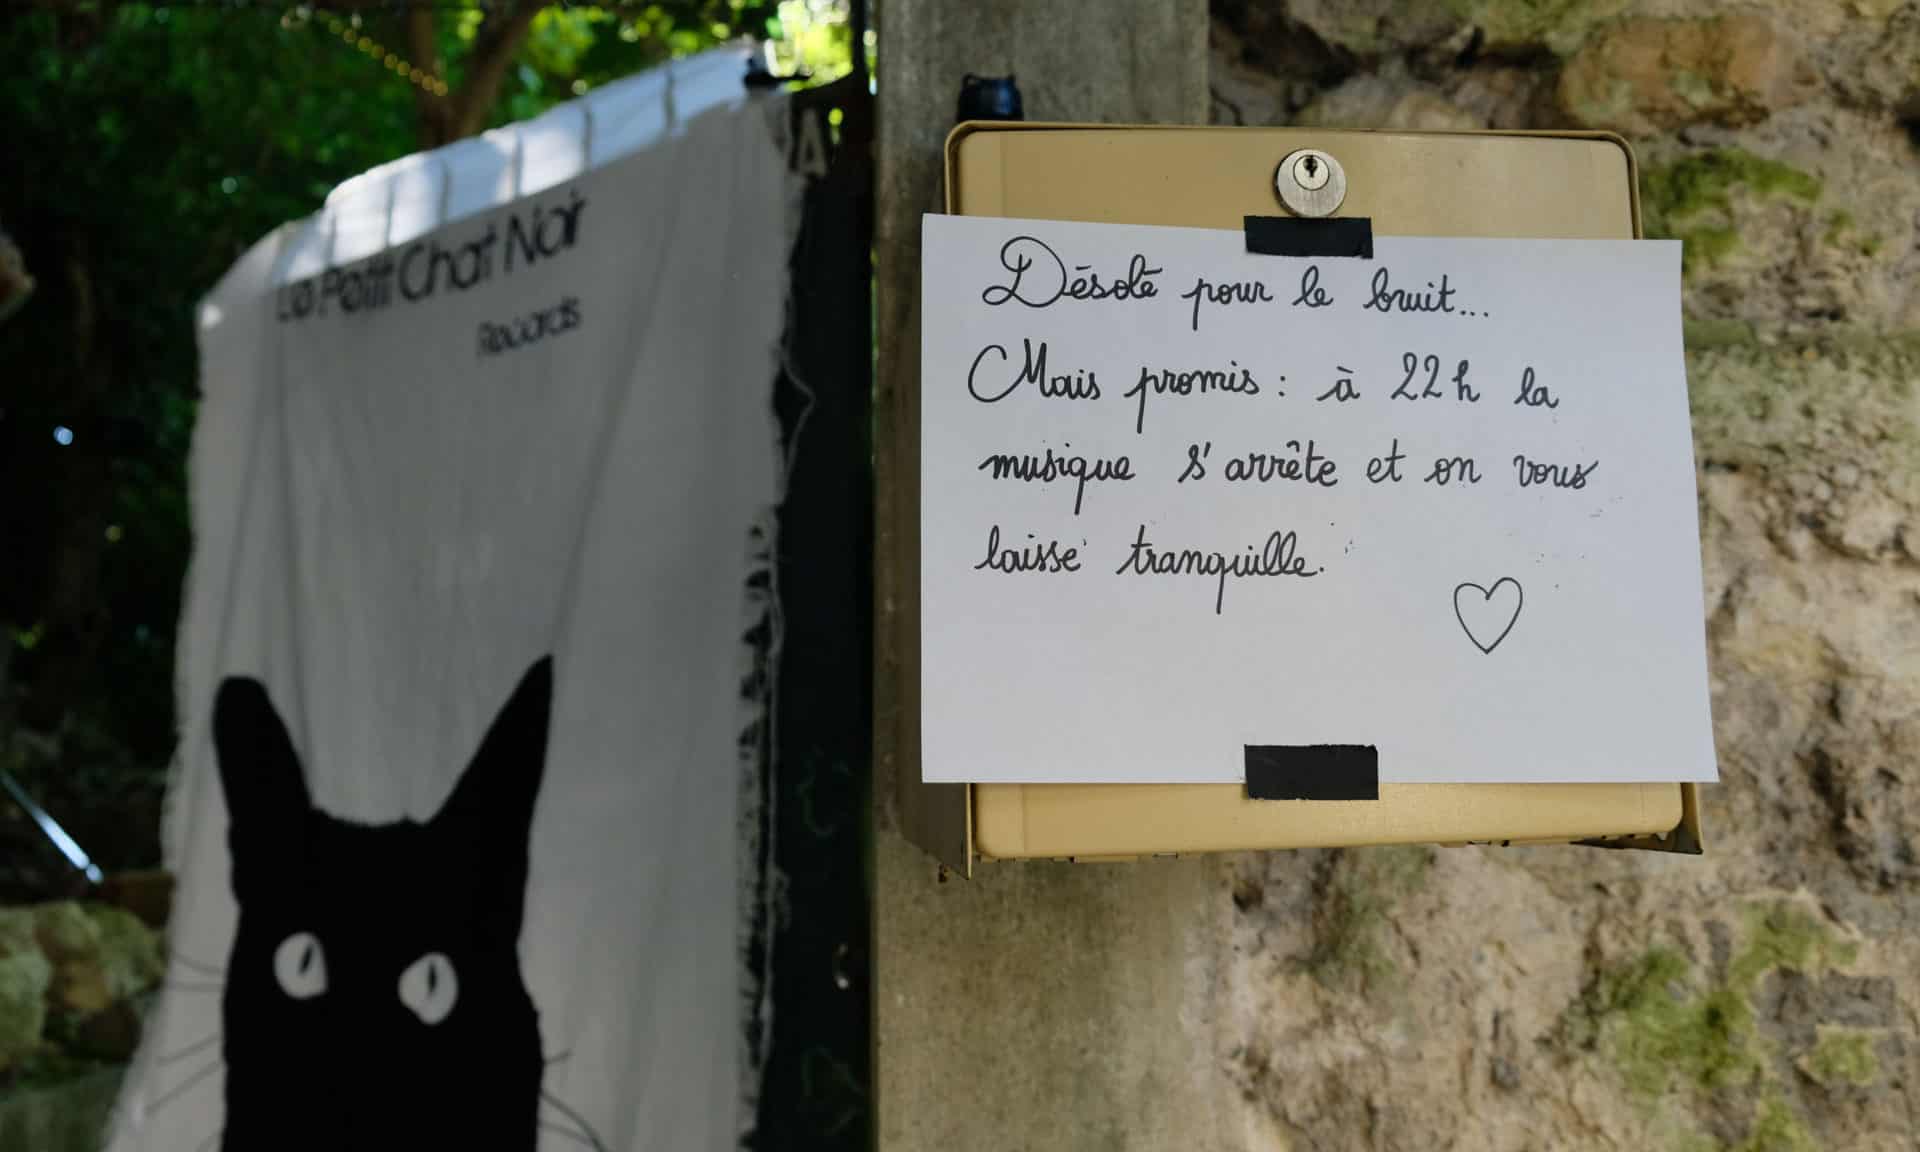 Le Petit Chat Noir
Records
Désolé pour le bruit...
Mais promis : à 22h la
musique s'arrête et on vous
laisse tranquille.